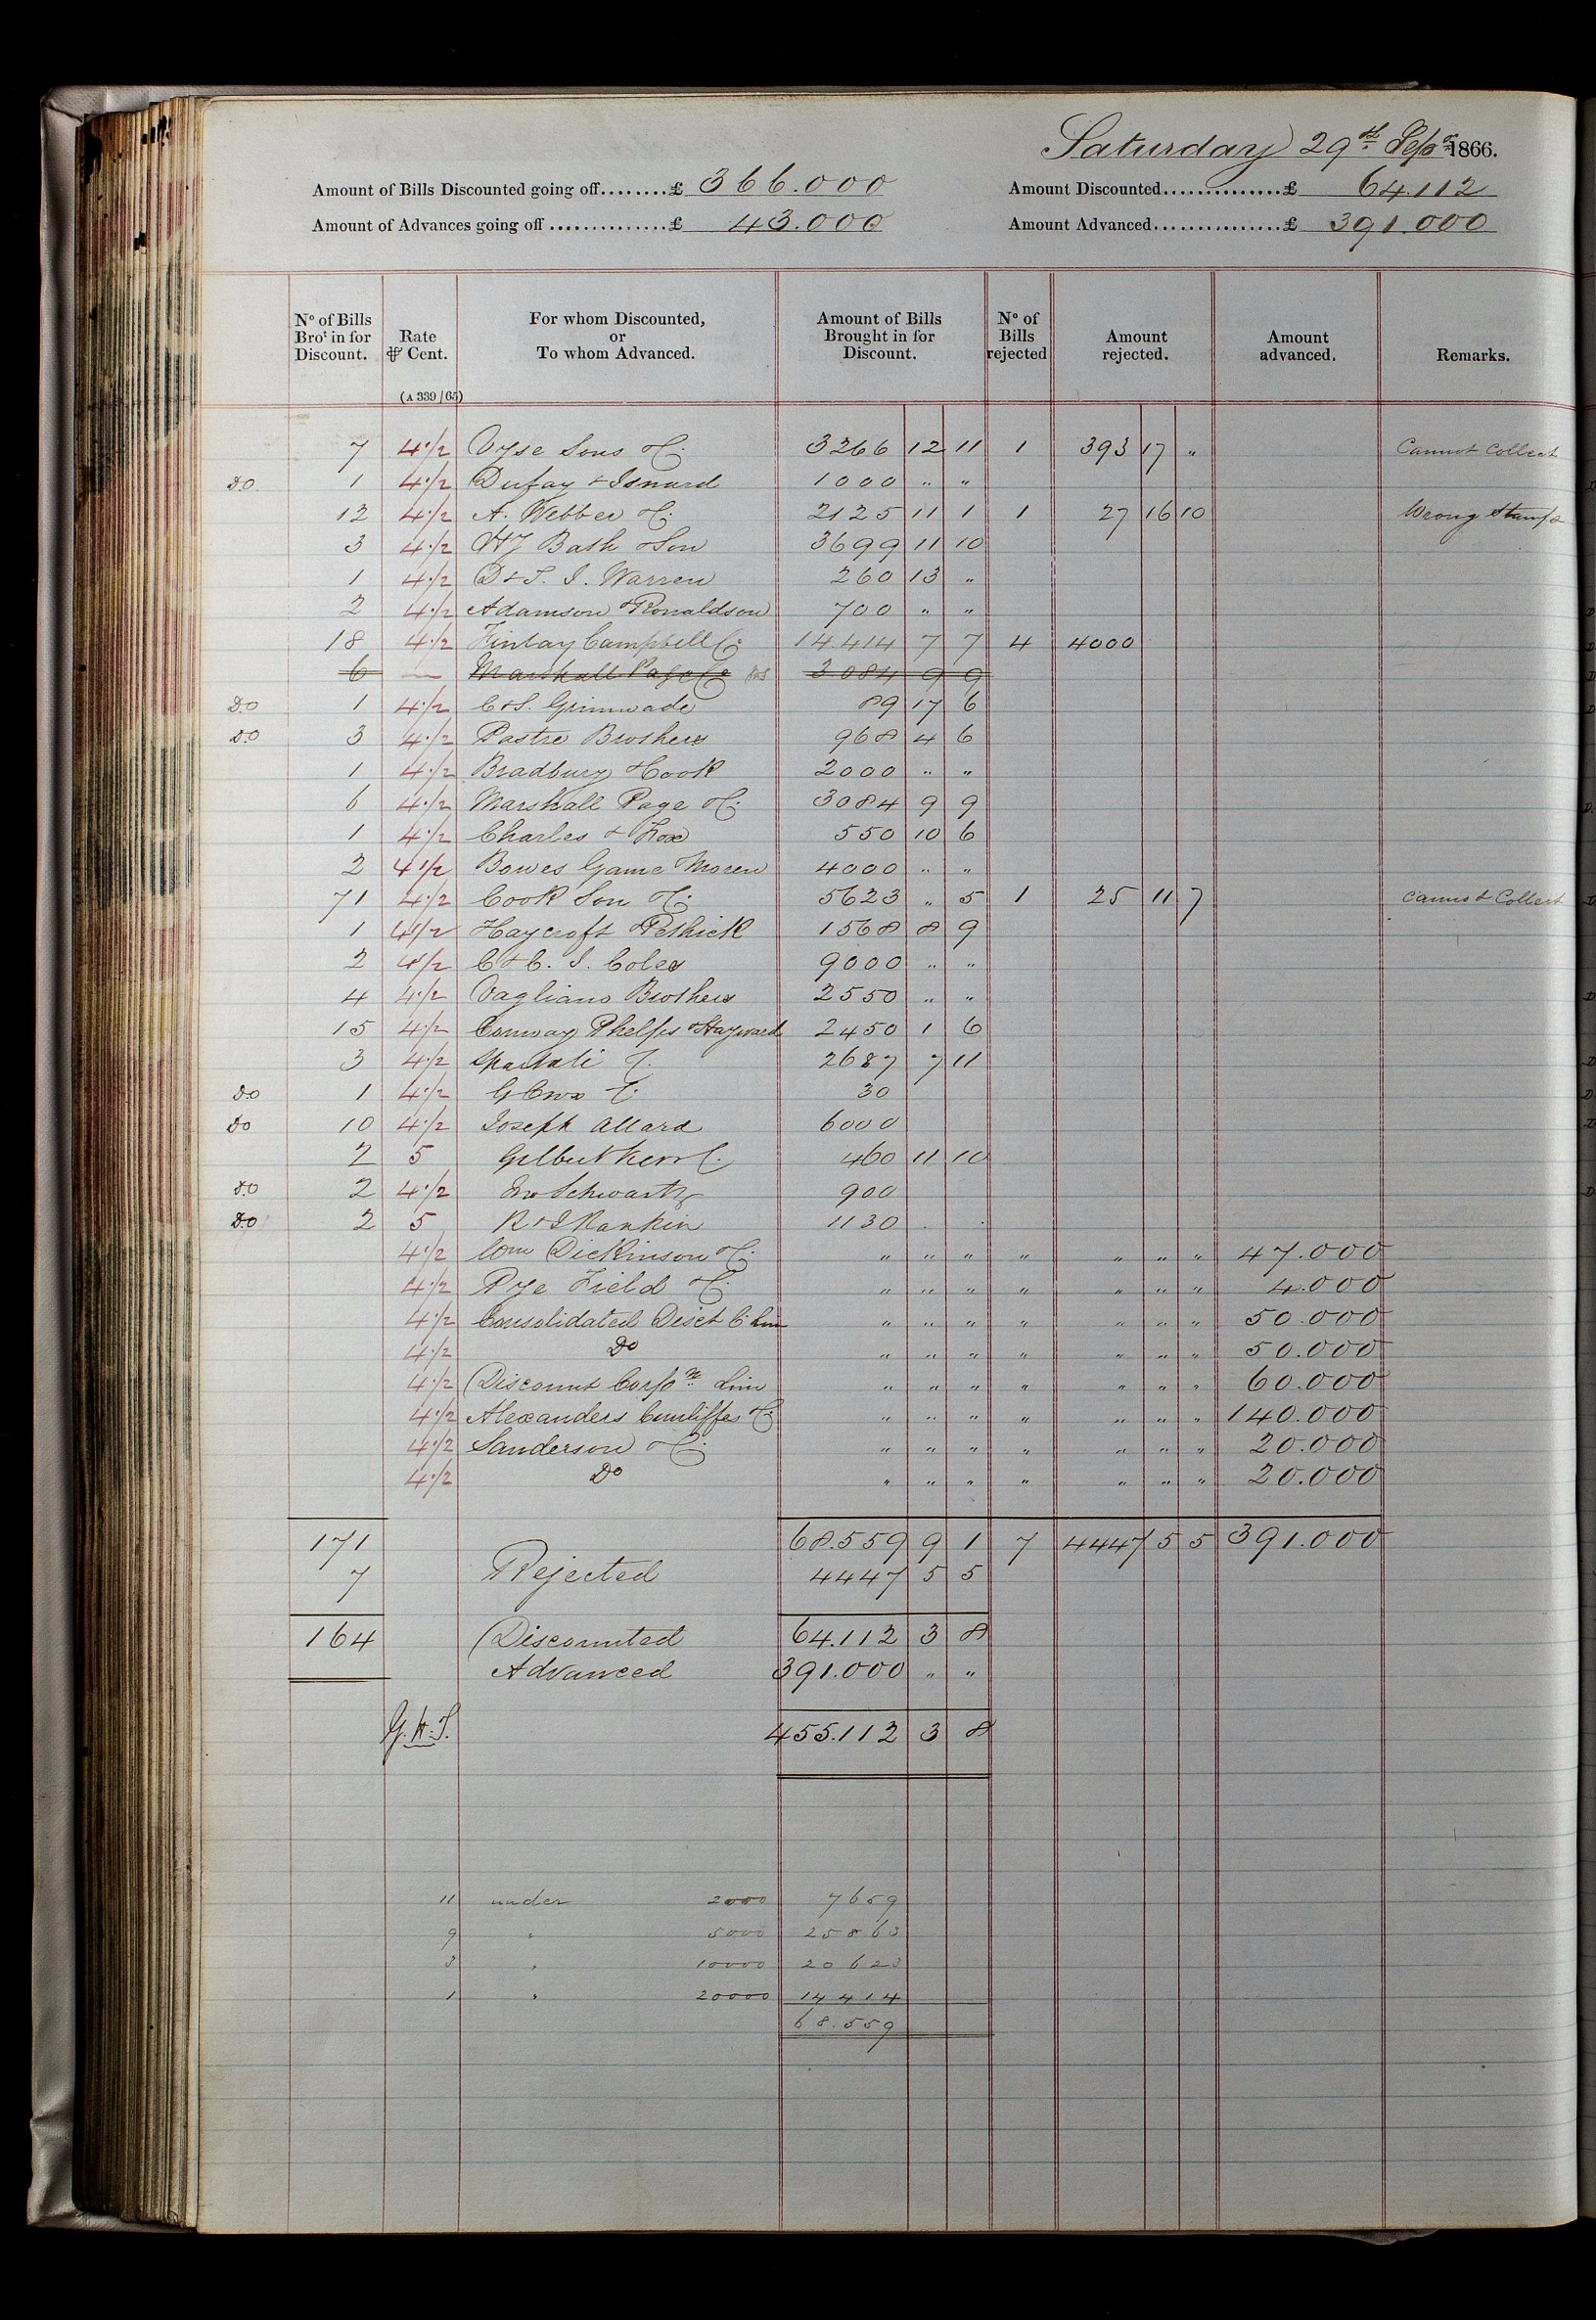 Saturday 29th Sepr 1866.
Amount of Bills Discounted going off........£ 366.000 Amount Discounted..............£ 64.112
Amount of Advances going off ..............£ 43.000 Amount Advanced................£ 391.000
No of Bills Brot in for Discount. Rate ⅌ Cent. For whom Discounted, or To whom Advanced. Amount of Bills Brought in for Discount. No of Bills rejected Amount rejected. Amount advanced. Remarks.
(A 339/65)
7 4 1/2 Vyse Sons & Co 3266 12 11 1 393 17 " Cannot Collect
Do 1 4 1/2 Dufay & Isnard 1000 " "
12 4 1/2 A. Webber & Co 2125 11 1 1 27 16 10 Wrong Stamp
3 4 1/2 Bash & Son 3699 11 10
1 4 1/2 D & T. I. Warren 260 13 "
2 4 1/2 Adamson & Ronaldson 700 " "
18 4 1/2 Finlay Campbell Co 14.414 7 7 4 4000
6 — Marshall Page Co 3084 9 9
Do 1 4 1/2 C & S. Grimwade 89 17 6
Do 3 4 1/2 Pastre Brothers 968 4 6
1 4 1/2 Bradbury & Cook 2000 " "
6 4 1/2 Marshall Page & Co 3084 9 9
1 4 1/2 Charles & Fox 550 10 6
2 4 1/2 Bowes Game Moren 4000 " "
71 4 1/2 Cook Son & Co 5623 " 5 1 25 11 7 Cannot Collect
1 4 1/2 Haycroft & Pethick 1568 8 9
2 4 1/2 C & C. I. Coles 9000 " "
4 4 1/2 Vagliano Brothers 2550 " "
15 4 1/2 Conway Phelps & Hayward 2450 1 6
3 4 1/2 Spartali Co 2687 7 11
Do 1 4 1/2 30
Do 10 4 1/2 Joseph Allard 6000
2 5 Gilbert Kerr Co 460 11 10
Do 2 4 1/2 Schwartz 900
Do 2 5 R & J Rankin 1130
4 1/2 Wm Dickinson & Co " " " " " " " 47.000
4 1/2 Pye Field & Co " " " " " " " 4.000
4 1/2 Consolidated Disct Co Lim " " " " " " " 50.000
4 1/2 Do " " " " " " " 50.000
4 1/2 Discount Corpn Lim " " " " " " " 60.000
4 1/2 Alexanders Cunliffes & Co " " " " " " " 140.000
4 1/2 Sanderson & Co " " " " " " " 20.000
4 1/2 Do " " " " " " " 20.000
171 68.559 9 1 7 4447 5 5 391.000
7 Rejected 4447 5 5
164 Discounted 64.112 3 8
Advanced 391.000 " "
G.H.S. 455.112 3 8
11 under 2000 7659
9 " 5000 25863
3 " 10000 20623
1 " 20000 14414
68.559